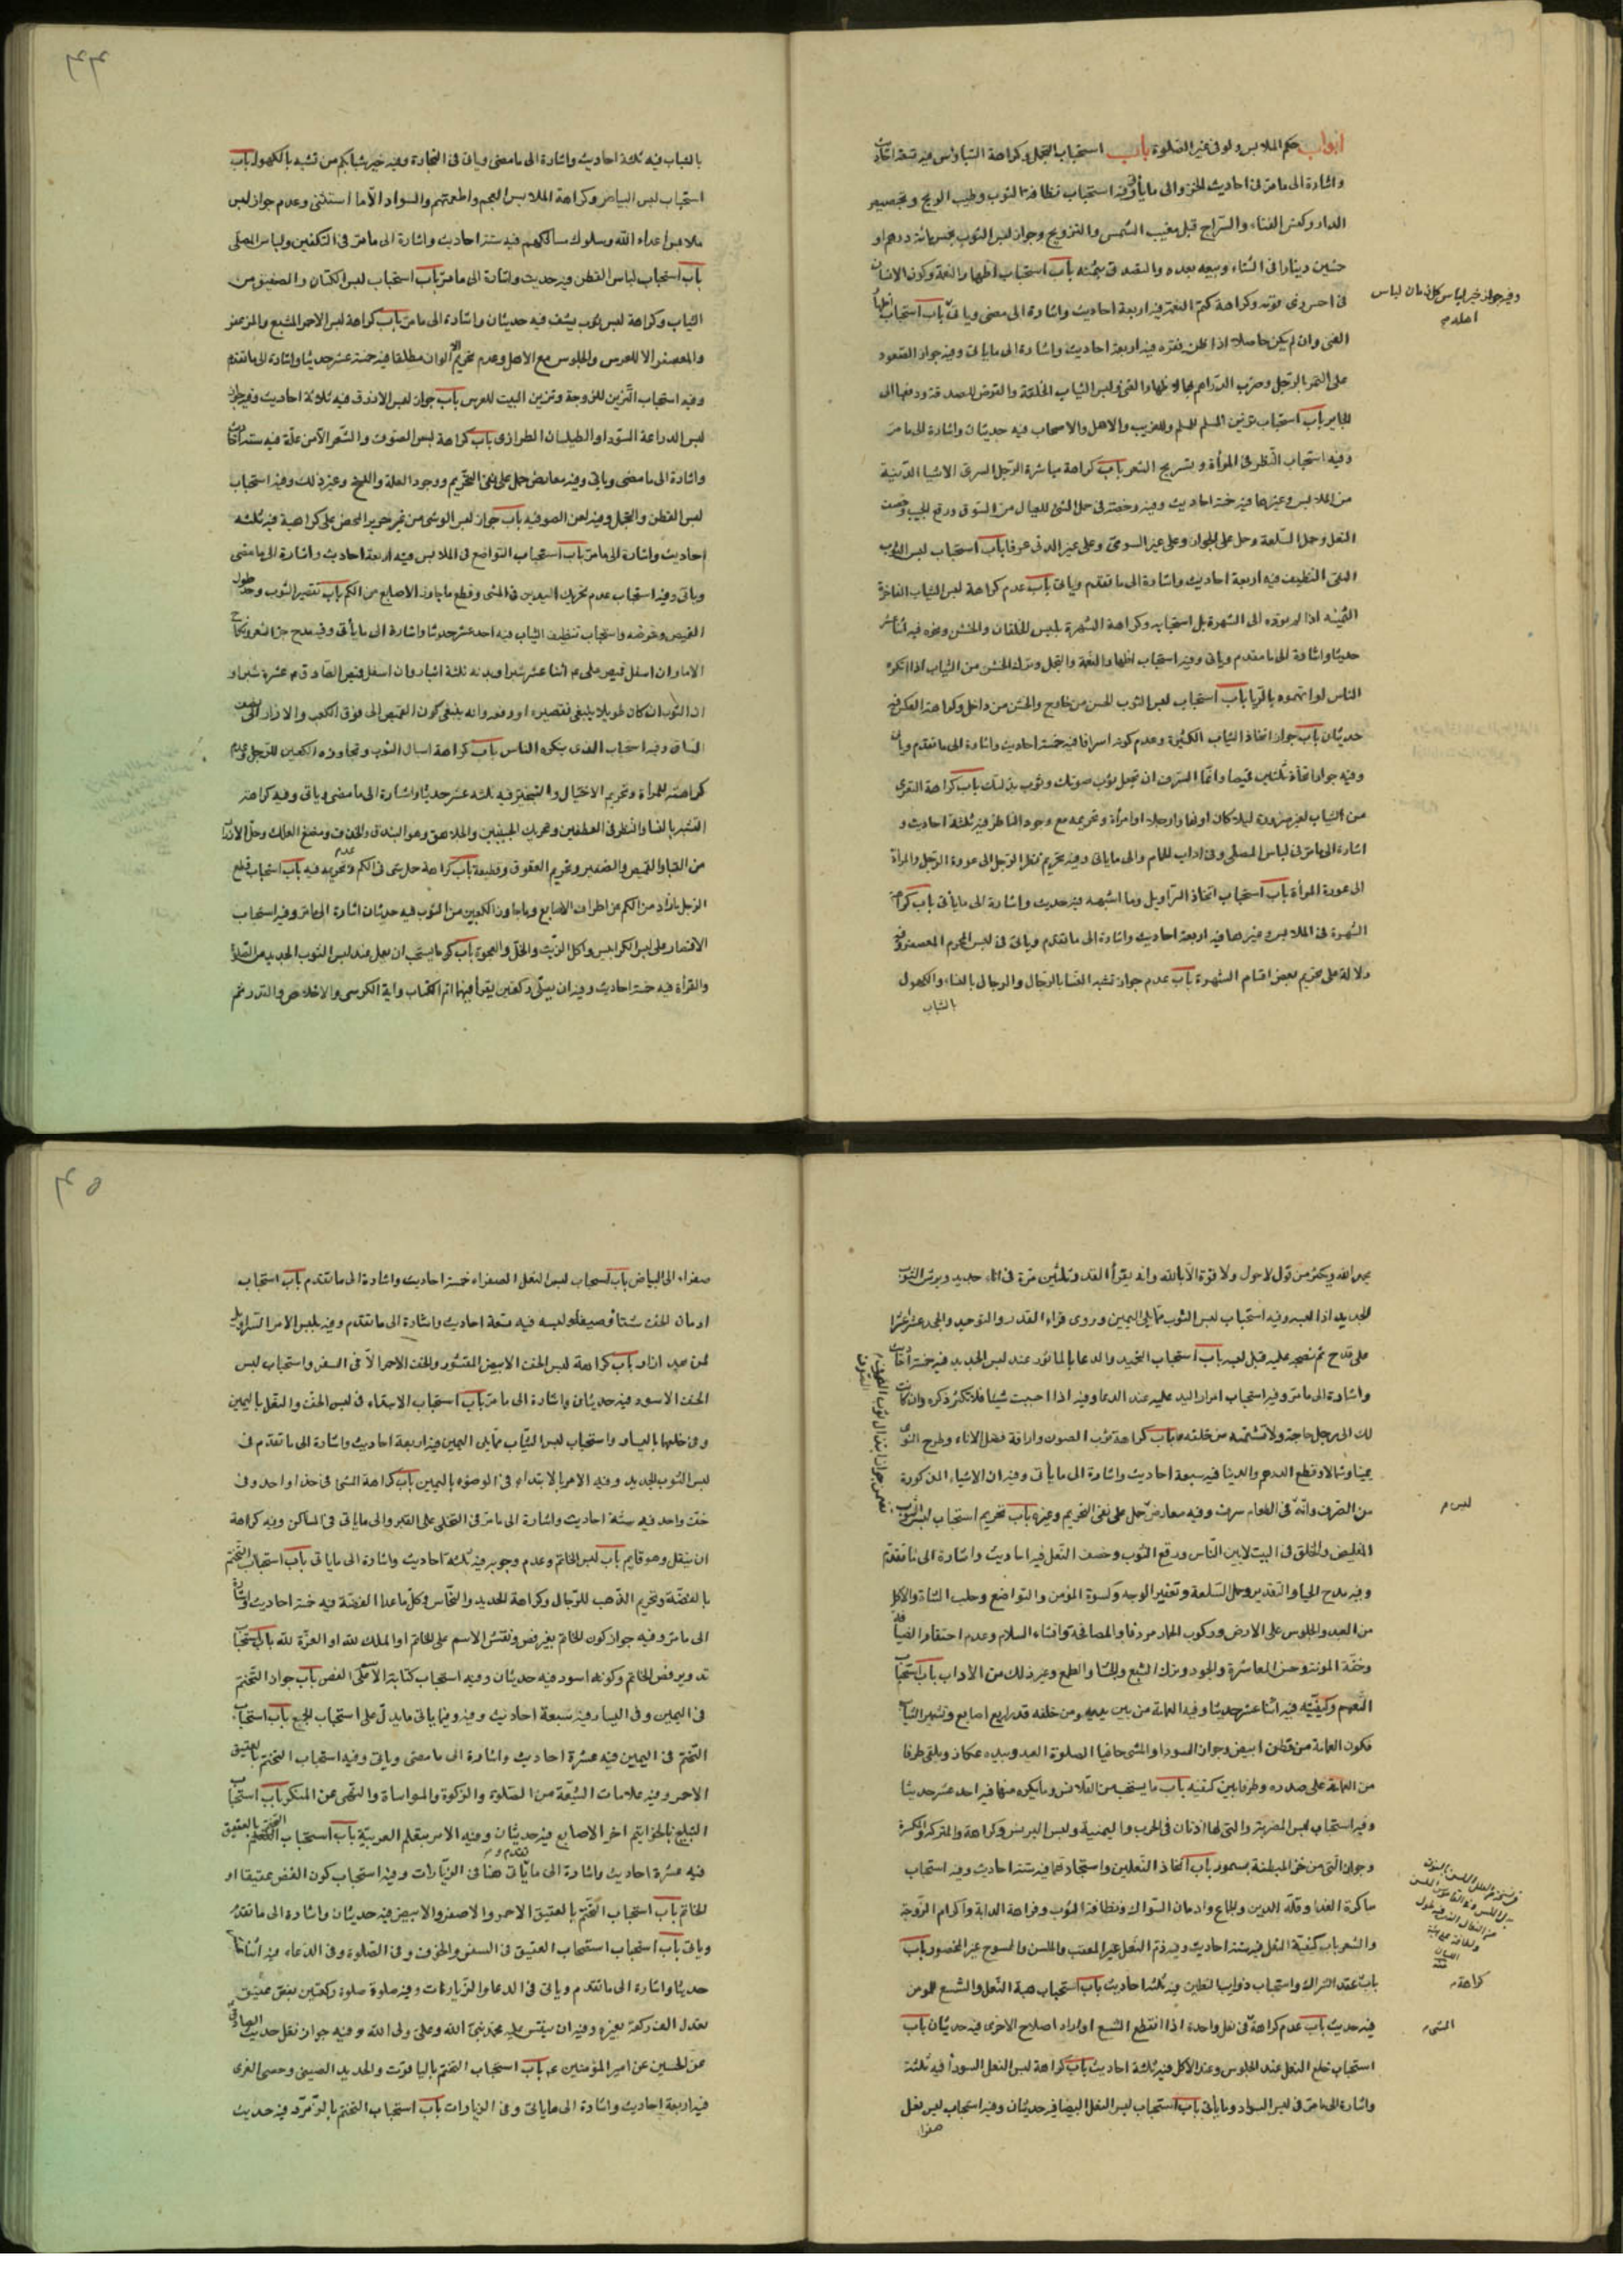 ابواب حكم الملابس ولو فى غير الصلوة باب استحباب التجمل وكراهة التباؤس فيه تسعة احاديث
واشارة الى ما مر فى احاديث الخز والى ما يأتى وفيه استحباب نظافة الثوب وطيب الريح وتجصيص
الدار وكنس الفناء والسراج قبل مغيب الشمس والتزويج وجواز لبس الثوب بخمسمائة درهم او
خمسين دينارا فى الشتاء وبيعه بعده والتصدق بثمنه باب استحباب اظهار النعمة وكون الانسان
فى احسن زى قومه وكراهة كتم النعمة فيه اربعة احاديث واشارة الى مامضى وياتى باب استحباب اظهار
وفيه جواز خير لباس كل زمان لباس
اهله م
الغنى وان لم يكن حاصلا اذا ظن فقره فيه اربعة احاديث واشارة الى ما ياتى وفيه جواز القعود
على التمر للرجل وضرب الدراهم بها لاظهار الغنى ولبس الثياب الخلقة والتعرض للصدقة ودفعها الى
الجابر باب استحباب تزين المسلم للمسلم وللغريب والاهل والاصحاب فيه حديثان واشارة الى ما مر
وفيه استحباب النظر فى المرأة وتسريح الشعر باب كراهة مباشرة الرجل السرى الاشيا الدنية
من الملابس وغيرها فيه خمسة احاديث وفيه رخصة فى حمل الشئ للعيال من السوق ورقع الجيب وخصف
النعل وحمل السلعة وحمل على الجواز وعلى غير السرى وعلى غير الدنى عرفا باب استحباب لبس الثوب
النقى النظيف فيه اربعة احاديث واشارة الى ما تقدم وياتى باب عدم كراهة لبس الثياب الفاخرة
الثمينة اذا لم تؤد الى الشهرة بل استحبابه وكراهة الشهرة بلبس الخلقان والخشن ونحوه فيه اثنا عشر
حديثا واشارة الى ما تقدم وياتى وفيه استحباب اظهار النعمة والتجمل وترك الخشن من الثياب اذا انكره
الناس او اتهموه بالريا باب استحباب لبس الثوب الحسن من خارج والخشن من داخل وكراهة العكس فيه
حديثان باب جواز اتخاذ الثياب الكثيرة وعدم كونه اسرافا فيه خمسة احاديث واشارة الى ما تقدم وياتى
وفيه جواز اتخاذ ثلثين قميصا وانما السرف ان تجعل ثوب صونك ثوب بذلتك باب كراهة التعرى
من الثياب لغير ضرورة ليلا كان او نهارا رجلا او امرأة وتحريمه مع وجود الناظر فيه ثلثة احاديث و
اشارة الى ما مر فى لباس المصلى وفى اداب الحمام والى ما ياتى وفيه تحريم نظر الرجل الى عورة الرجل والمرأة
الى عورة المرأة باب استحباب اتخاذ السراويل وما اشبهه فيه حديث واشارة الى ما يأتى باب كراهة
الشهرة فى الملابس وغيرها فيه اربعة احاديث واشارة الى ما تقدم وياتى فى لبس المحرم المعصفر وفيه
دلالة على تحريم بعض اقسام الشهرة باب عدم جواز تشبه النسا بالرجال والرجال بالنساء والكهول
بالشباب
٤٤
بالشباب فيه ثلثة احاديث واشارة الى ما مضى وياتى فى التجارة وفيه خير شبابكم من تشبه بالكهول باب
استحباب لبس البياض وكراهة الملابس العجم واطعمتهم والسواد الا ما استثنى وعدم جواز لبس
ملابس اعداء الله وسلوك مسالكهم فيه ستة احاديث واشارة الى ما مر فى التكفين ولباس المصلى
باب استحباب لباس القطن فيه حديث واشارة الى ما مر باب استحباب لبس الكتان والصفيق من
الثياب وكراهة لبس ثوب يشف فيه حديثان واشارة الى ما مر باب كراهة لبس الاحمر المشبع والمزعفر
والمعصفر الا للعرس والجلوس مع الاهل وعدم تحريم الالوان مطلقا فيه خمسة عشر حديثا واشارة الى ما تقدم
وفيه استحباب التزين للزوجة وتزين البيت للعرس باب جواز لبس الازرق فيه ثلاثة احاديث وفيه جواز
لبس الدراعة السودا والطيلسان الطرازى باب كراهة لبس الصوف والشعر الا من علة فيه ستة احاديث
واشارة الى ما مضى وياتى وفيه معارض حمل على نفى التحريم ووجود العلة والنسخ وغير ذلك وفيه استحباب
لبس القطن والتجمل وفيه لعن الصوفيه باب جواز لبس الوشى من غير حرير المحض على كراهية فيه ثلثة
احاديث واشارة الى ما مر باب استحباب التواضع فى الملابس وفيه اربعة احاديث واشارة الى ما مضى
وياتى وفيه استحباب عدم تحريك اليدين فى المشى وقطع ما جاوز الاصابع من الكم باب تقصير الثوب وحد طول
القميص وعرضه واستحباب تنظيف الثياب فيه احد عشر حديثا واشارة الى ما يأتى وفيه مدح جز الشعر ونكاح
الاماء وان اسفل قميص على ع اثنا عشر شبرا وبدنه ثلثة اشبار وان اسفل قميص الصادق ع عشرة شبر او
ان الثوب ان كان طويلا ينبغى تقصيره او رفعه وانه ينبغى كون القميص الى فوق الكعب والا زار الى نصف
الساق وفيه استحباب الذى ينكره الناس باب كراهة اسبال الثوب وتجاوزه الكعبين للرجل وعدم
كراهته للمراة وتحريم الاختيال والتبختر فيه ثلثة عشر حديثا واشارة الى ما مضى وياتى وفيه كراهة
التشبه بالنسا والنظر فى العطفين وتحريك الجنبين والجلاهق وهو البندق والخذف ومضغ العلك وحل الازار
من القبا والقميص والصفير وتحريم العقوق وقطيعة باب كراهة حمل شئ فى الكم وعدم تحريمه فيه باب استحباب قطع
الرجل مازاد من الكم عن اطراف الاصابع وما جاوز الكعبين من الثوب فيه حديثان اشارة الى ما مر وفيه استحباب
الاقتصار على لبس الكرابيس واكل الزيت والخل والعجوة باب كيما يستحب ان يعمل عند لبس الثوب الجديد من الصلوة
والقرأة فيه خمسة احاديث وفيه ان يصلى ركعتين يقرأ فيهما ام الكتاب واية الكرسى والاخلاص والقدر ثم
يحمد الله ويكثر من قول لا حول ولا قوة الا بالله وانه يقرأ القدر ثلثين مرة فى اناء جديد ويرش الثوب
الجديد اذا لبسه وفيه استحباب لبس الثوب مما يلى اليمين وروى قراءة القدر والتوحيد والجحد عشرا عشرا
على قدح ثم نضحه عليه قبل لبسه باب استحباب التحميد والدعا بالمأثور عند لبس الجديد فيه خمسة احاديث
واشارة الى ما مر وفيه استحباب امرار اليد عليه عند الدعا وفيه اذا احببت شيئا فلا تكثر ذكره وان كانت
لك الى رجل حاجة ولا تشتمه من خلفه باب كراهة ثوب الصون واراقة فضل الاناء وطرح النوى
يمينا وشمالا وقطع الدرهم والدينار فيه سبعة احاديث واشارة الى ما يأتى وفيه ان الاشياء المذكورة
من السرف وانه فى الطعام سرف وفيه معارض حمل على نفى التحريم وغيره باب تحريم استحباب لبس الثوب
لبس م
الغليظ والخلق فى البيت لا بين الناس ورقع الثوب وخصف النعل فيه احاديث واشارة الى ما تقدم
وفيه مدح الحيا والتقدير وحمل السلعة وتعفير الوجه وكسوة المؤمن والتواضع وحلب الشاة والاكل
من العبد والجلوس على الارض وركوب الحمار مردفا والمصافحة وافشاء السلام وعدم احتقار الضيافة
وخفة المونة وحسن المعاشرة والجود وترك الشبع والجشا والطمع وغير ذلك من الاداب باب استحباب
التعمم وكيفيته فيه اثنا عشر حديثا وفيه العمامة من بين يديه ومن خلفه قدر اربع اصابع وتشمير الثياب
فكون العمامة من قطن ابيض وجواز السودا والمشى حافيا لصلوة العيد وبيده عكاز ويلقى طرفا
من العمامة على صدره وطرفا بين كتفيه باب ما يستحب من القلانس وما يكره منها فيه احد عشر حديثا
وفيه استحباب لبس المضربة والتى لها اذنان فى الحرب واليمنية ولبس البرنس وكراهة والمتركة والمكسرة
وجواز التى من خز المبطنة بسمور باب اتخاذ النعلين واستجادتها فيه ستة احاديث وفيه استحباب
مباكرة الغدا وقلة الدين والجماع وادمان السواك ونظافة الثوب وفراهة الدابة واكرام الزوجة
والشعر باب كيفية النعل فيه ستة احاديث وفيه ذم النعل غير المعقب والملسن والممسوح غير المخصور باب
باب عقد الشراك واستحباب ذوابا لنعلين فيه ثلثة احاديث باب استحباب هبة النعل والشسع للمومن
كراهة م
فيه حديث باب عدم كراهة فى نعل واحدة اذا انقطع الشسع او اراد اصلاح الاخرى فيه حديثان باب
المشى م
استحباب خلع النعل عند الجلوس وعند الاكل فيه ثلثة احاديث باب كراهة لبس النعل السودأ فيه ثلثة
واشارة الى ما مر فى لبس السواد وما يأتى باب استحباب لبس النعل البيضا فيه حديثان وفيه استحباب لبس نعل
صفرا
٤٥
صفراء الى البياض باب استحباب لبس النعل الصفراء خمسة احاديث واشارة الى ما تقدم باب استحباب
ادمان الخف شتأ وصيفا ولبسه فيه سبعة احاديث واشارة الى ما تقدم وفيه يلبس الامر السراويل
لمن يجد ازار باب كراهة لبس الخف الابيض المقشور والخف الاحمر الا فى السفر واستحباب لبس
الخف الاسود فيه حديثان واشارة الى ما مر باب استحباب الابتداء فى لبس الخف والنعل باليمين
وفى خلعها باليسار واستحباب لبس الثياب مما يلى اليمين فيه اربعة احاديث واشارة الى ما تقدم فى
لبس الثوب الجديد وفيه الامر بالابتداء فى الوضوء باليمين باب كراهة المشى فى حذا واحد وفى
خف واحد فيه ستة احاديث واشارة الى ما مر فى التخلى على القبر والى ما ياتى فى المساكن وفيه كراهة
ان ينتعل وهو قايم باب لبس الخاتم وعدم وجوبه فيه ثلثة احاديث واشارة الى ما ياتى باب استحباب التختم
بالفضة وتحريم الذهب للرجال وكراهة الحديد والنحاس وكل ما عدا الفضة فيه خمسة احاديث واشارة
الى ما مر وفيه جواز كون الخاتم بغير فص ونقش الاسم على الخاتم او الملك لله او العزة لله باب استحباب
تدوير فص الخاتم وكونه اسود فيه حديثان وفيه استحباب كتابة الاسم على الفص باب جواز التختم
فى اليمين وفى اليسار فيه سبعة احاديث وفيه وفيما ياتى ما يدل على استحباب الجمع باب استحباب
التختم فى اليمين فيه عشرة احاديث واشارة الى ما مضى وياتى وفيه استحباب التختم بالعقيق
الاحمر وفيه علامات الشيعة من الصلوة والزكوة والمواساة والنهى عن المنكر باب استحباب
التبليغ بالخواتيم اخر الاصابع فيه حديثان وفيه الامر بتعلم العربية باب استحباب التختم بالعقيق
فيه عشرة احاديث واشارة الى ما ياتى هنا فى الزيارات وفيه استحباب كون الفص عقيقا او
الخاتم باب استحباب التختم بالعقيق الاحمر والاصفر والابيض فيه حديثان واشارة الى ما تقدم
وياتى باب استحباب استصحاب العقيق فى السفر والخوف وفى الصلوة وفى الدعاء فيه اثنا عشر
حديثا واشارة الى ما تقدم وياتى فى الدعا والزيارات وفيه صلوة ركعتين بفص عقيق
تعدل الف ركعة بغيره وفيه ان ينقش عليه محمد نبى الله وعلى ولى الله وفيه جواز نقل حديث الصادق
عن الحسين عن امير المؤمنين ع باب استحباب التختم باليا قوت والحديد الصينى وحصى الغرى
فيه اربعة احاديث واشارة الى ما ياتى وفى الزيارات باب استحباب التختم بالزمرد فيه حديث